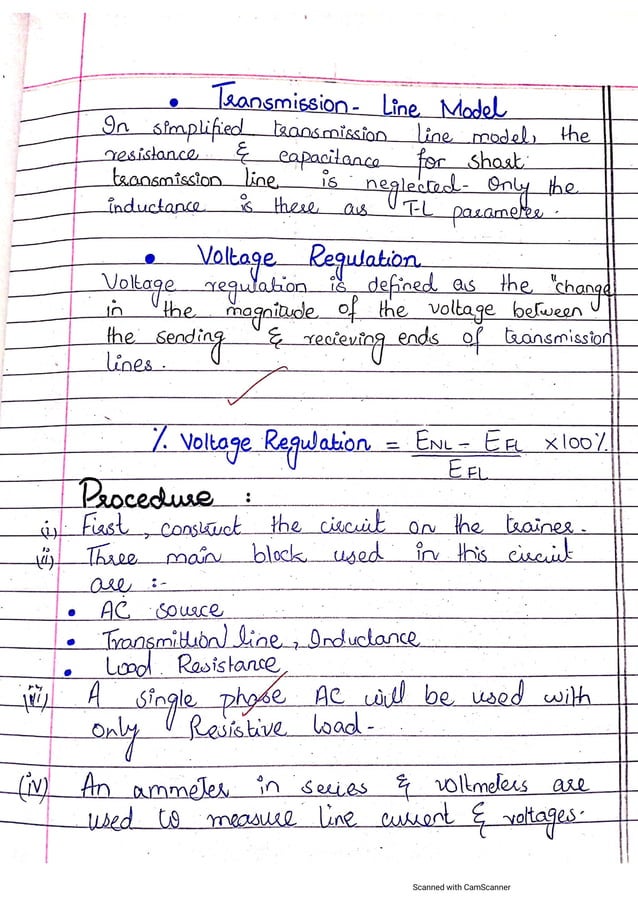 • Transmission - Line Model
In simplified transmission line model, the
resistance & capacitance for short
transmission line is neglected. Only the
inductance is there as T-L parameter.
• Voltage Regulation
Voltage regulation is defined as the "change
in the magnitude of the voltage between
the sending & recieving ends of transmission
lines.
% Voltage Regulation = ENL - EFL x100%
EFL
Procedure :
(i) First, construct the circuit on the trainer.
(ii) Three main block used in this circuit
are :-
• AC source
• Transmittion line, Inductance
• Load Resistance
A single phase AC will be used with
only Resistive load -
(iv) An ammeter in series & voltmeters are
used to measure line current & voltages.
Scanned with CamScanner